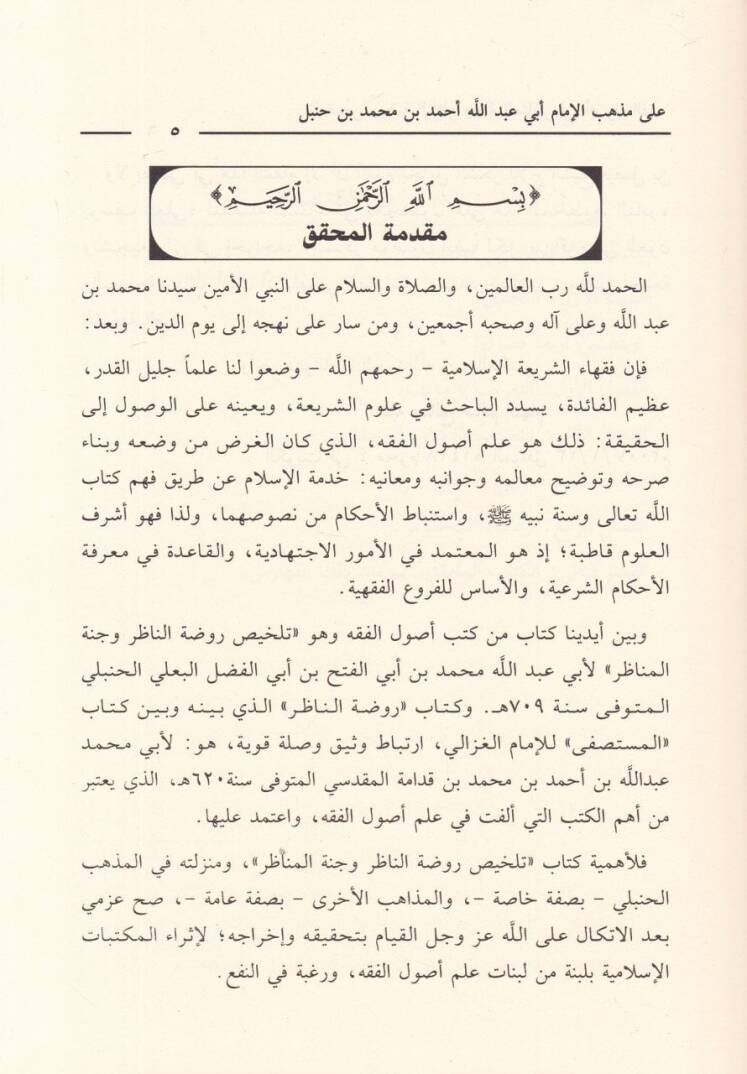 على مذهب الإمام أبي عبد اللَّه أحمد بن محمد بن حنبل
٥
﴿بِسْمِ ٱللَّهِ ٱلرَّحْمَٰنِ ٱلرَّحِيمِ﴾
مقدمة المحقق
الحمد للَّه رب العالمين، والصلاة والسلام على النبي الأمين سيدنا محمد بن
عبد اللَّه وعلى آله وصحبه أجمعين، ومن سار على نهجه إلى يوم الدين. وبعد:
فإن فقهاء الشريعة الإسلامية – رحمهم اللَّه – وضعوا لنا علماً جليل القدر،
عظيم الفائدة، يسدد الباحث في علوم الشريعة، ويعينه على الوصول إلى
الحقيقة: ذلك هو علم أصول الفقه، الذي كان الغرض من وضعه وبناء
صرحه وتوضيح معالمه وجوانبه ومعانيه: خدمة الإسلام عن طريق فهم كتاب
اللَّه تعالى وسنة نبيه ﷺ، واستنباط الأحكام من نصوصهما، ولذا فهو أشرف
العلوم قاطبة؛ إذ هو المعتمد في الأمور الاجتهادية، والقاعدة في معرفة
الأحكام الشرعية، والأساس للفروع الفقهية.
وبين أيدينا كتاب من كتب أصول الفقه وهو «تلخيص روضة الناظر وجنة
المناظر» لأبي عبد اللَّه محمد بن أبي الفتح بن أبي الفضل البعلي الحنبلي
المتوفى سنة ٧٠٩هـ. وكتاب «روضة الناظر» الذي بينه وبين كتاب
«المستصفى» للإمام الغزالي، ارتباط وثيق وصلة قوية، هو: لأبي محمد
عبداللَّه بن أحمد بن محمد بن قدامة المقدسي المتوفى سنة٦٢٠هـ، الذي يعتبر
من أهم الكتب التي ألفت في علم أصول الفقه، واعتمد عليها.
فلأهمية كتاب «تلخيص روضة الناظر وجنة المناظر»، ومنزلته في المذهب
الحنبلي – بصفة خاصة –، والمذاهب الأخرى – بصفة عامة –، صح عزمي
بعد الاتكال على اللَّه عز وجل القيام بتحقيقه وإخراجه؛ لإثراء المكتبات
الإسلامية بلبنة من لبنات علم أصول الفقه، ورغبة في النفع.